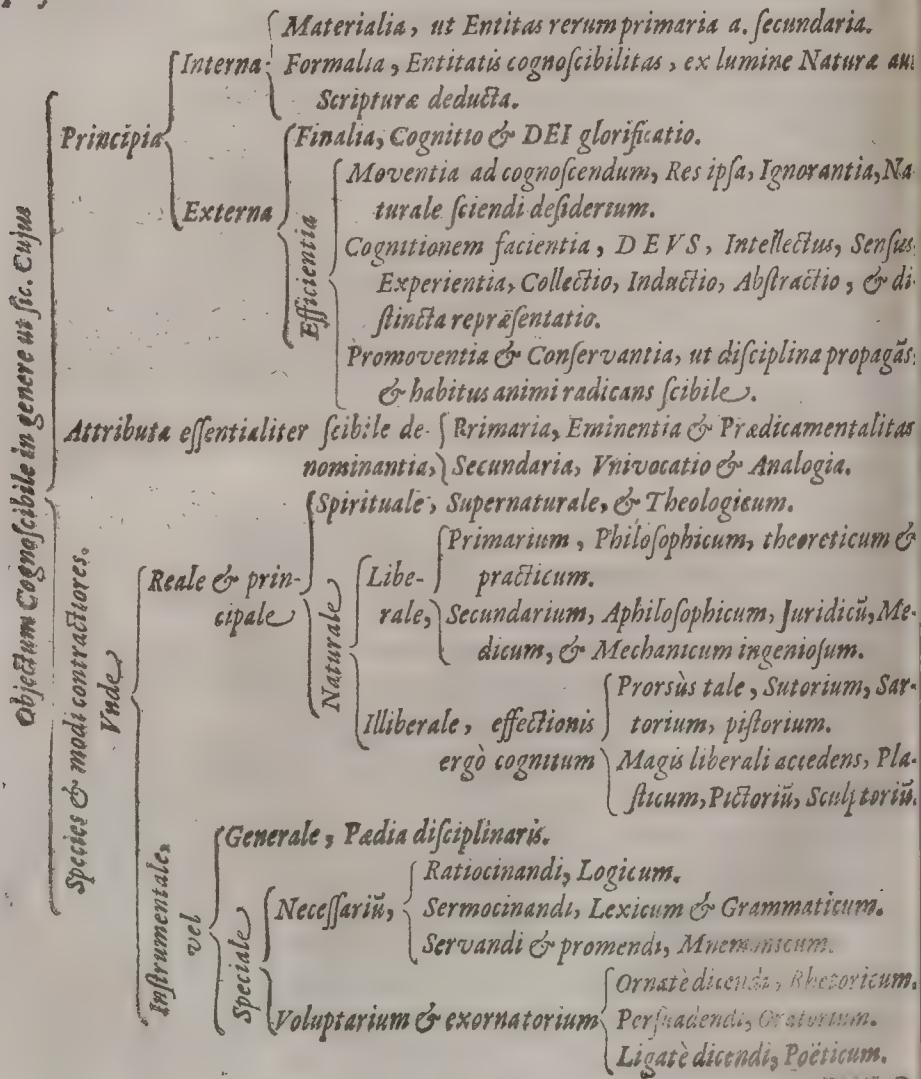 Materialia, ut Entitas rerum primaria a. ſecundaria.
Interna Formalia, Entitatis cognoſcibilitas, ex lumine Naturæ aut
Scripturæ deducta.
Principia
Finalia, Cognitio & DEI glorificatio.
Externa
Efficientia
Moventia ad cognoſcendum, Res ipſa, Ignorantia, Na-
turale ſciendi deſiderium.
Cognitionem facientia, DEVS, Intellectus, Senſus,
Experientia, Collectio, Inductio, Abſtractio, & di-
ſtincta repræſentatio.
Promoventia & Conſervantia, ut diſciplina propagãs,
& habitus animi radicans ſcibile.
Objectum Cognoſcibile in genere ut ſic. Cujus
Attributa eſſentialiter ſcibile de- Rrimaria, Eminentia & Prædicamentalitas
nominantia, Secundaria, Vnivocatio & Analogia.
Species & modi contractiores.
Vnde
Spirituale, Supernaturale, & Theologicum.
Reale & prin-
cipale
Naturale
Libe-
rale,
Primarium, Philoſophicum, theoreticum &
practicum.
Secundarium, Aphiloſophicum, Juridicũ, Me-
dicum, & Mechanicum ingenioſum.
Illiberale, effectionis
ergò cognitum
Prorsùs tale, Sutorium, Sar-
torium, piſtorium.
Magis liberali accedens, Pla-
ſticum, Pictoriũ, Sculptoriũ.
Inſtrumentale,
vel
Generale, Pædia diſciplinaris.
Speciale
Neceſſariũ,
Ratiocinandi, Logicum.
Sermocinandi, Lexicum & Grammaticum.
Servandi & promendi, Mnemonicum.
Voluptarium & exornatorium
Ornatè dicendi, Rhetoricum.
Perſuadendi, Oratorium.
Ligatè dicendi, Poëticum.